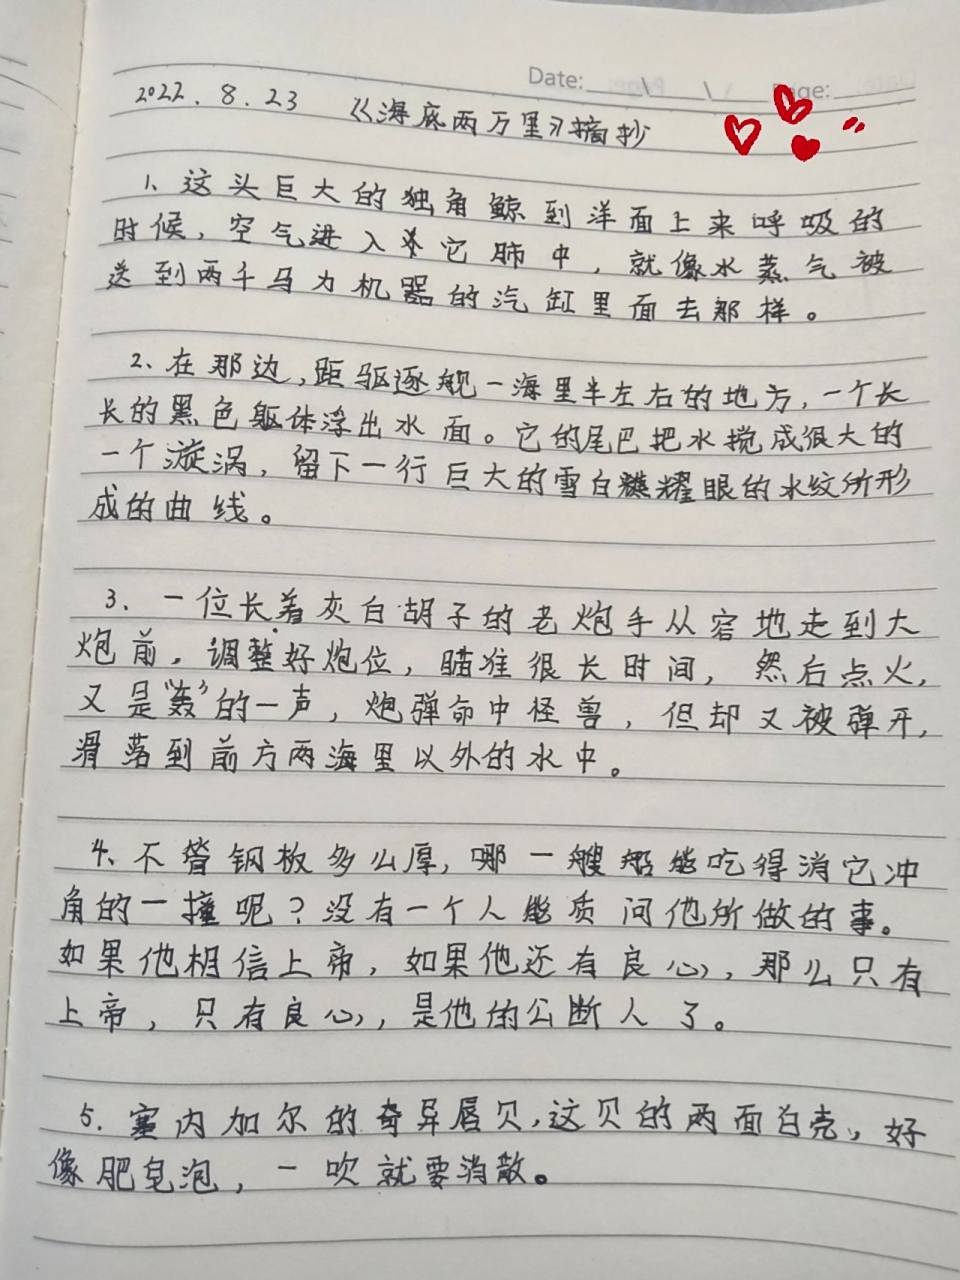 Date: Page:
2022.8.23 《海底两万里》摘抄
1、这头巨大的独角鲸到洋面上来呼吸的
时候，空气进入它肺中，就像水蒸气被
送到两千马力机器的汽缸里面去那样。
2、在那边，距驱逐舰一海里半左右的地方，一个长
长的黑色躯体浮出水面。它的尾巴把水搅成很大的
一个漩涡，留下一行巨大的雪白耀眼的水纹所形
成的曲线。
3.一位长着灰白胡子的老炮手从容地走到大
炮前，调整好炮位，瞄准很长时间，然后点火，
又是“轰”的一声，炮弹命中怪兽，但却又被弹开，
滑落到前方两海里以外的水中。
4、不管钢板多么厚，哪一艘船能吃得消它冲
角的一撞呢？没有一个人能质问他所做的事。
如果他相信上帝，如果他还有良心，那么只有
上帝，只有良心，是他的公断人了。
5.塞内加尔的奇异唇贝，这贝的两面白壳，好
像肥皂泡，一吹就要消散。